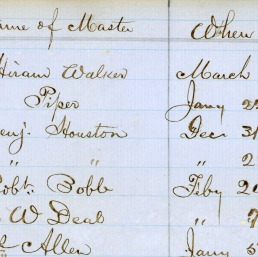 ame of Master When
Hiram Walker March
Piper Jany 22
enj. Houston Dec 31
" " 2
Robt. Bobb Feby 20
W Deal " 7
Allen Jany 5